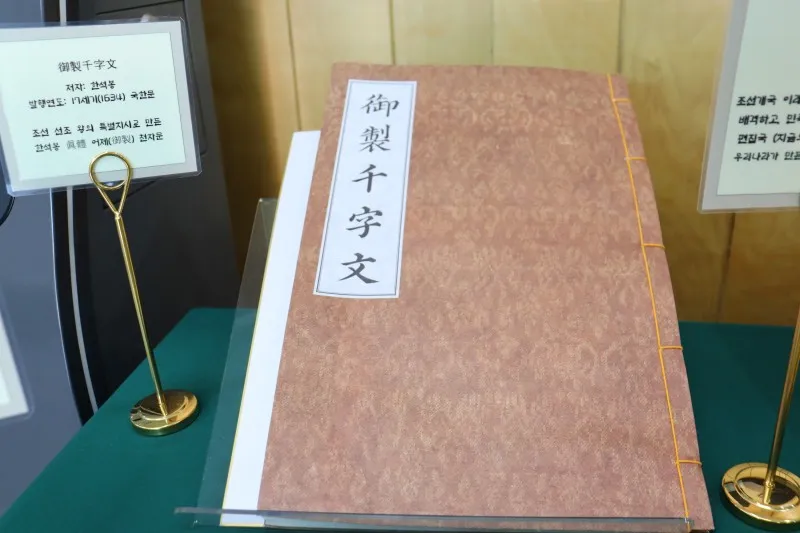 御製千字文
저자: 한석봉
발행연도: 17세기(1634) 국한문
조선 선조 왕의 특별지시로 만든
한석봉 眞體 어제(御製) 천자문
御製千字文
조선개국 이래
배격하고, 민
편집국 (지금
우리나라가 만든